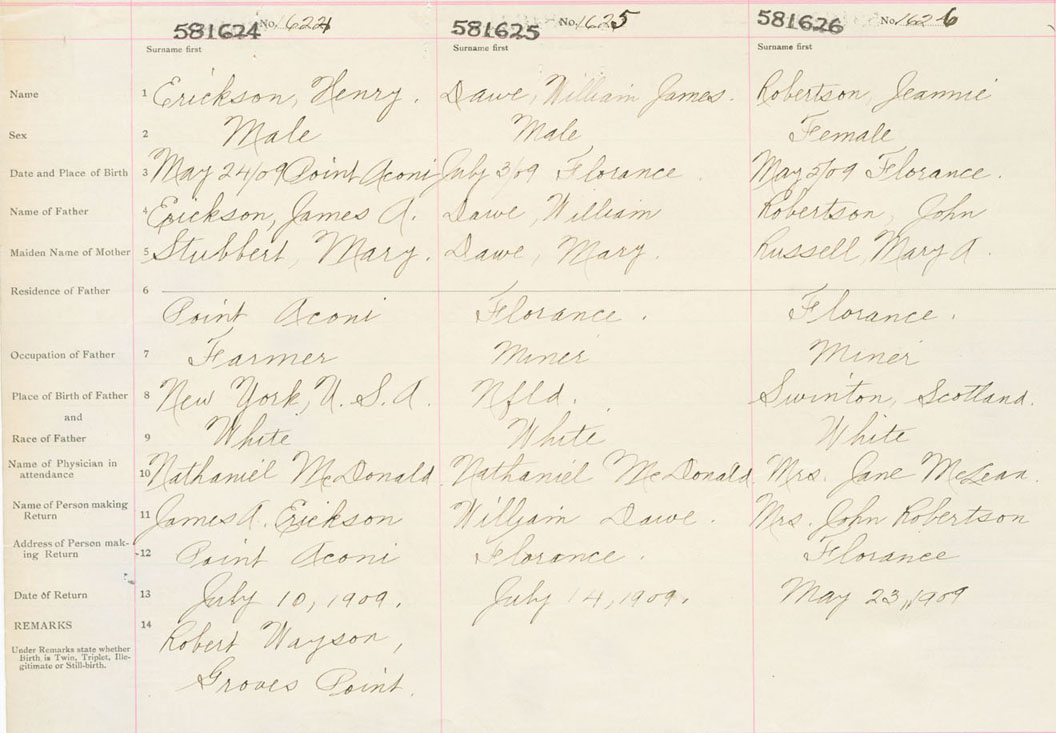 581624 No. 1624 581625 No. 1625 581626 No. 1626
Surname first Surname first Surname first
Name 1 Erickson, Henry. Dawe, William James. Robertson, Jeannie
Sex 2 Male Male Female
Date and Place of Birth 3 May 24/09 Point Aconi July 3/09 Florance. May 3/09 Florance.
Name of Father 4 Erickson, James A. Dawe, William Robertson, John
Maiden Name of Mother 5 Stubbert, Mary. Dawe, Mary. Russell, Mary A.
Residence of Father 6
Point Aconi Florance. Florance.
Occupation of Father 7 Farmer Miner Miner
Place of Birth of Father 8 New York, U. S. A. Nfld. Swinton, Scotland.
and
Race of Father 9 White White White
Name of Physician in
attendance 10 Nathaniel McDonald Nathaniel McDonald Mrs. Jane McLean.
Name of Person making
Return 11 James A. Erickson William Dawe. Mrs. John Robertson
Address of Person mak-
ing Return 12 Point Aconi Florance. Florance
Date of Return 13 July 10, 1909. July 14, 1909. May 23, 1909
REMARKS 14 Robert Wayson,
Under Remarks state whether
Birth is Twin, Triplet, Ille-
gitimate or Still-birth.
Groves Point.